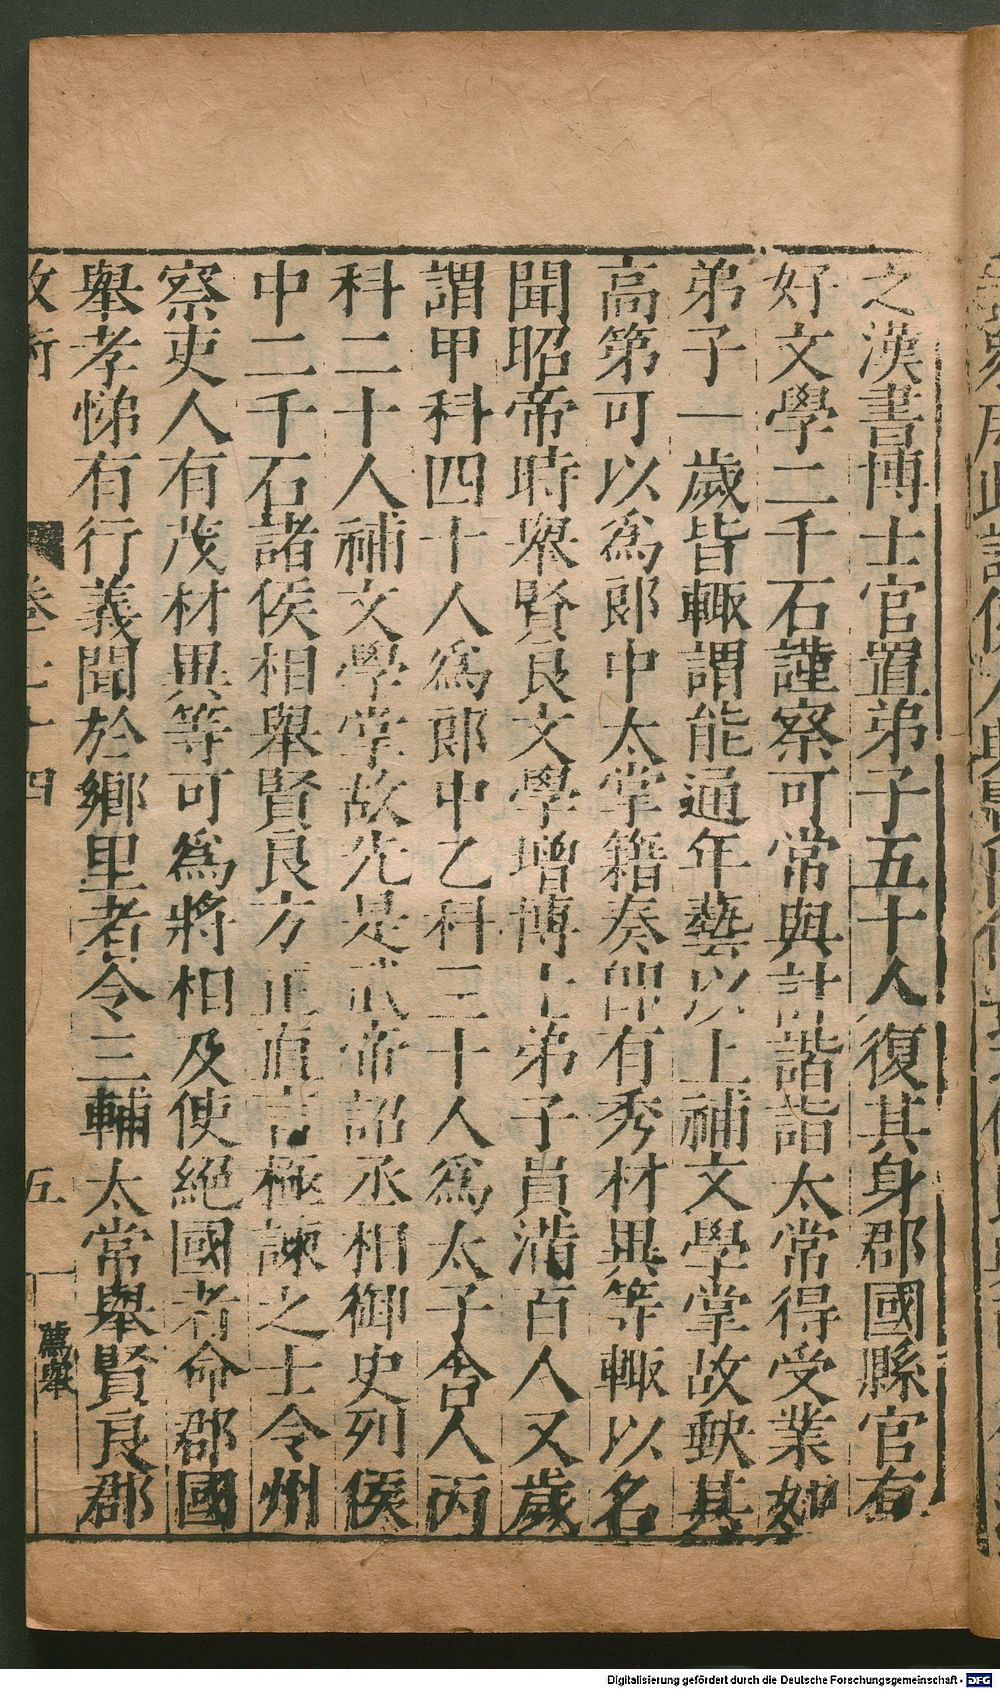 之漢書博士官置弟子五十人復其身郡國縣官有
好文學二千石謹察可常與計諧詣太常得受業如
弟子一歲皆輙謂能通年藝以上補文學掌故缺其
高第可以爲郎中太掌籍奏即有秀材異等輙以名
聞昭帝時舉賢良文學增博士弟子員滿百人又歲
謂甲科四十人爲郎中乙科三十人爲太子舍人丙
科二十人補文學掌故先是武帝詔丞相御史列侯
中二千石諸侯相舉賢良方正直言極諫之士令州
察吏人有茂材異等可爲將相及使絕國者命郡國
舉孝悌有行義聞於鄉里者令三輔太常舉賢良郡
卷七十四
五
薦舉
Digitalisierung gefördert durch die Deutsche Forschungsgemeinschaft - DFG